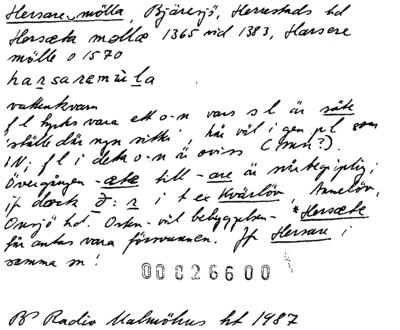 Hersaremölla, Bjäresjö, Herrestads hd
Hersæta mollæ 1365 vid 1383, Harsere
mölle o 1570
harsaremöla
vattenkvarn
f l tycks vara ett o-n vars s l är säte
'ställe där ngn sitter', här väl i gen pl som
IN; f l i detta o-n är oviss (
Övergången -æte till -are är
jf dock ð: r i t ex Kvärlöv, Annelöv,
Onsjö hd. Orten väl bebyggelsen *Hersæte
får antas vara försvunnen. Jf Hersare i
samma sn!
00026600
BP Radio Malmöhus ht 1987